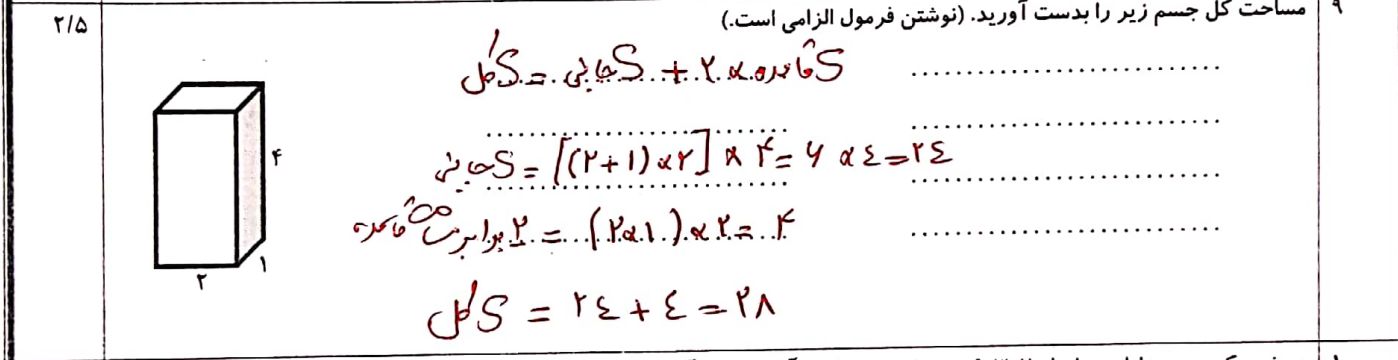 ۹ مساحت کل جسم زیر را بدست آورید. (نوشتن فرمول الزامی است.) ۲/۵
S کل = S جانبی + ۲ × S قاعده
S جانبی = [(۲+۱)×۲] × ۴ = ۶ × ٤ = ۲٤
۲ برابر مساحت قاعده = (۲×۱) × ۲ = ۴
S کل = ۲٤ + ٤ = ۲۸
۴
۱
۲